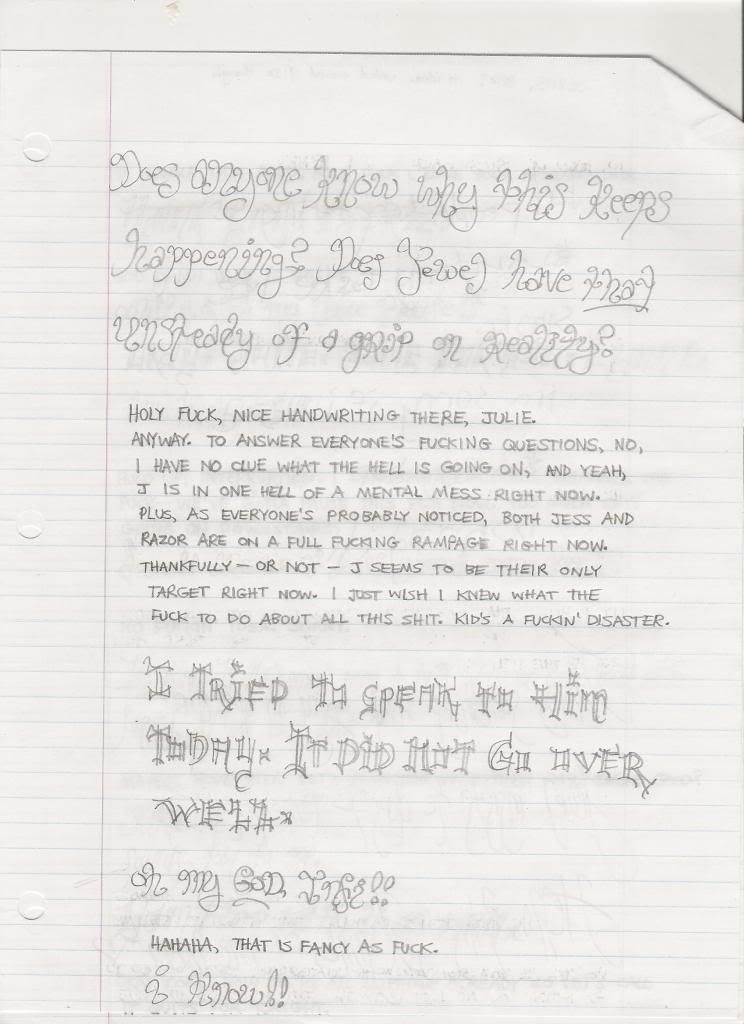 Does anyone know why this keeps
happening? Does Jewel have that
unsteady of a grip on reality?
HOLY FUCK, NICE HANDWRITING THERE, JULIE.
ANYWAY. TO ANSWER EVERYONE'S FUCKING QUESTIONS, NO,
I HAVE NO CLUE WHAT THE HELL IS GOING ON, AND YEAH,
J IS IN ONE HELL OF A MENTAL MESS RIGHT NOW.
PLUS, AS EVERYONE'S PROBABLY NOTICED, BOTH JESS AND
RAZOR ARE ON A FULL FUCKING RAMPAGE RIGHT NOW.
THANKFULLY — OR NOT — J SEEMS TO BE THEIR ONLY
TARGET RIGHT NOW. I JUST WISH I KNEW WHAT THE
FUCK TO DO ABOUT ALL THIS SHIT. KID'S A FUCKIN' DISASTER.
I TRiED To SPEAK To Him
ToDAy. IT DiD NoT Go oVER
WELL.
Oh my GOD,
HAHAHA, THAT IS FANCY AS FUCK.
i Know!!